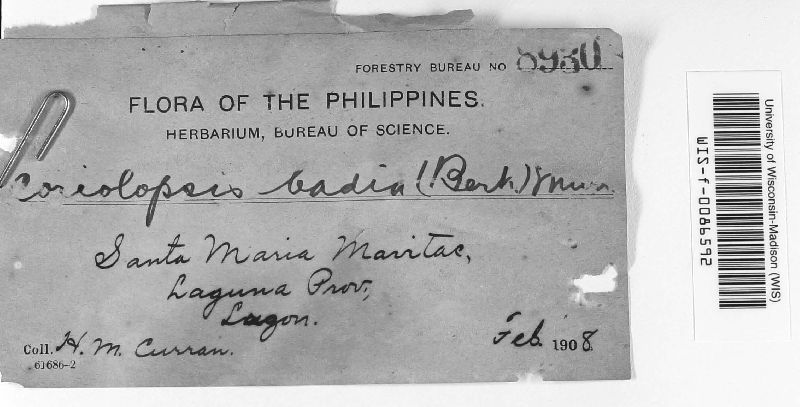 FORESTRY BUREAU NO 8930
FLORA OF THE PHILIPPINES.
HERBARIUM, BUREAU OF SCIENCE.
Coriolopsis badia (Berk.) Murr.
Santa Maria Mavitac,
Laguna Prov.,
Luzon.
Coll. H. M. Curran. Feb. 1908
61686-2
University of Wisconsin-Madison (WIS)
WIS-f-0086592